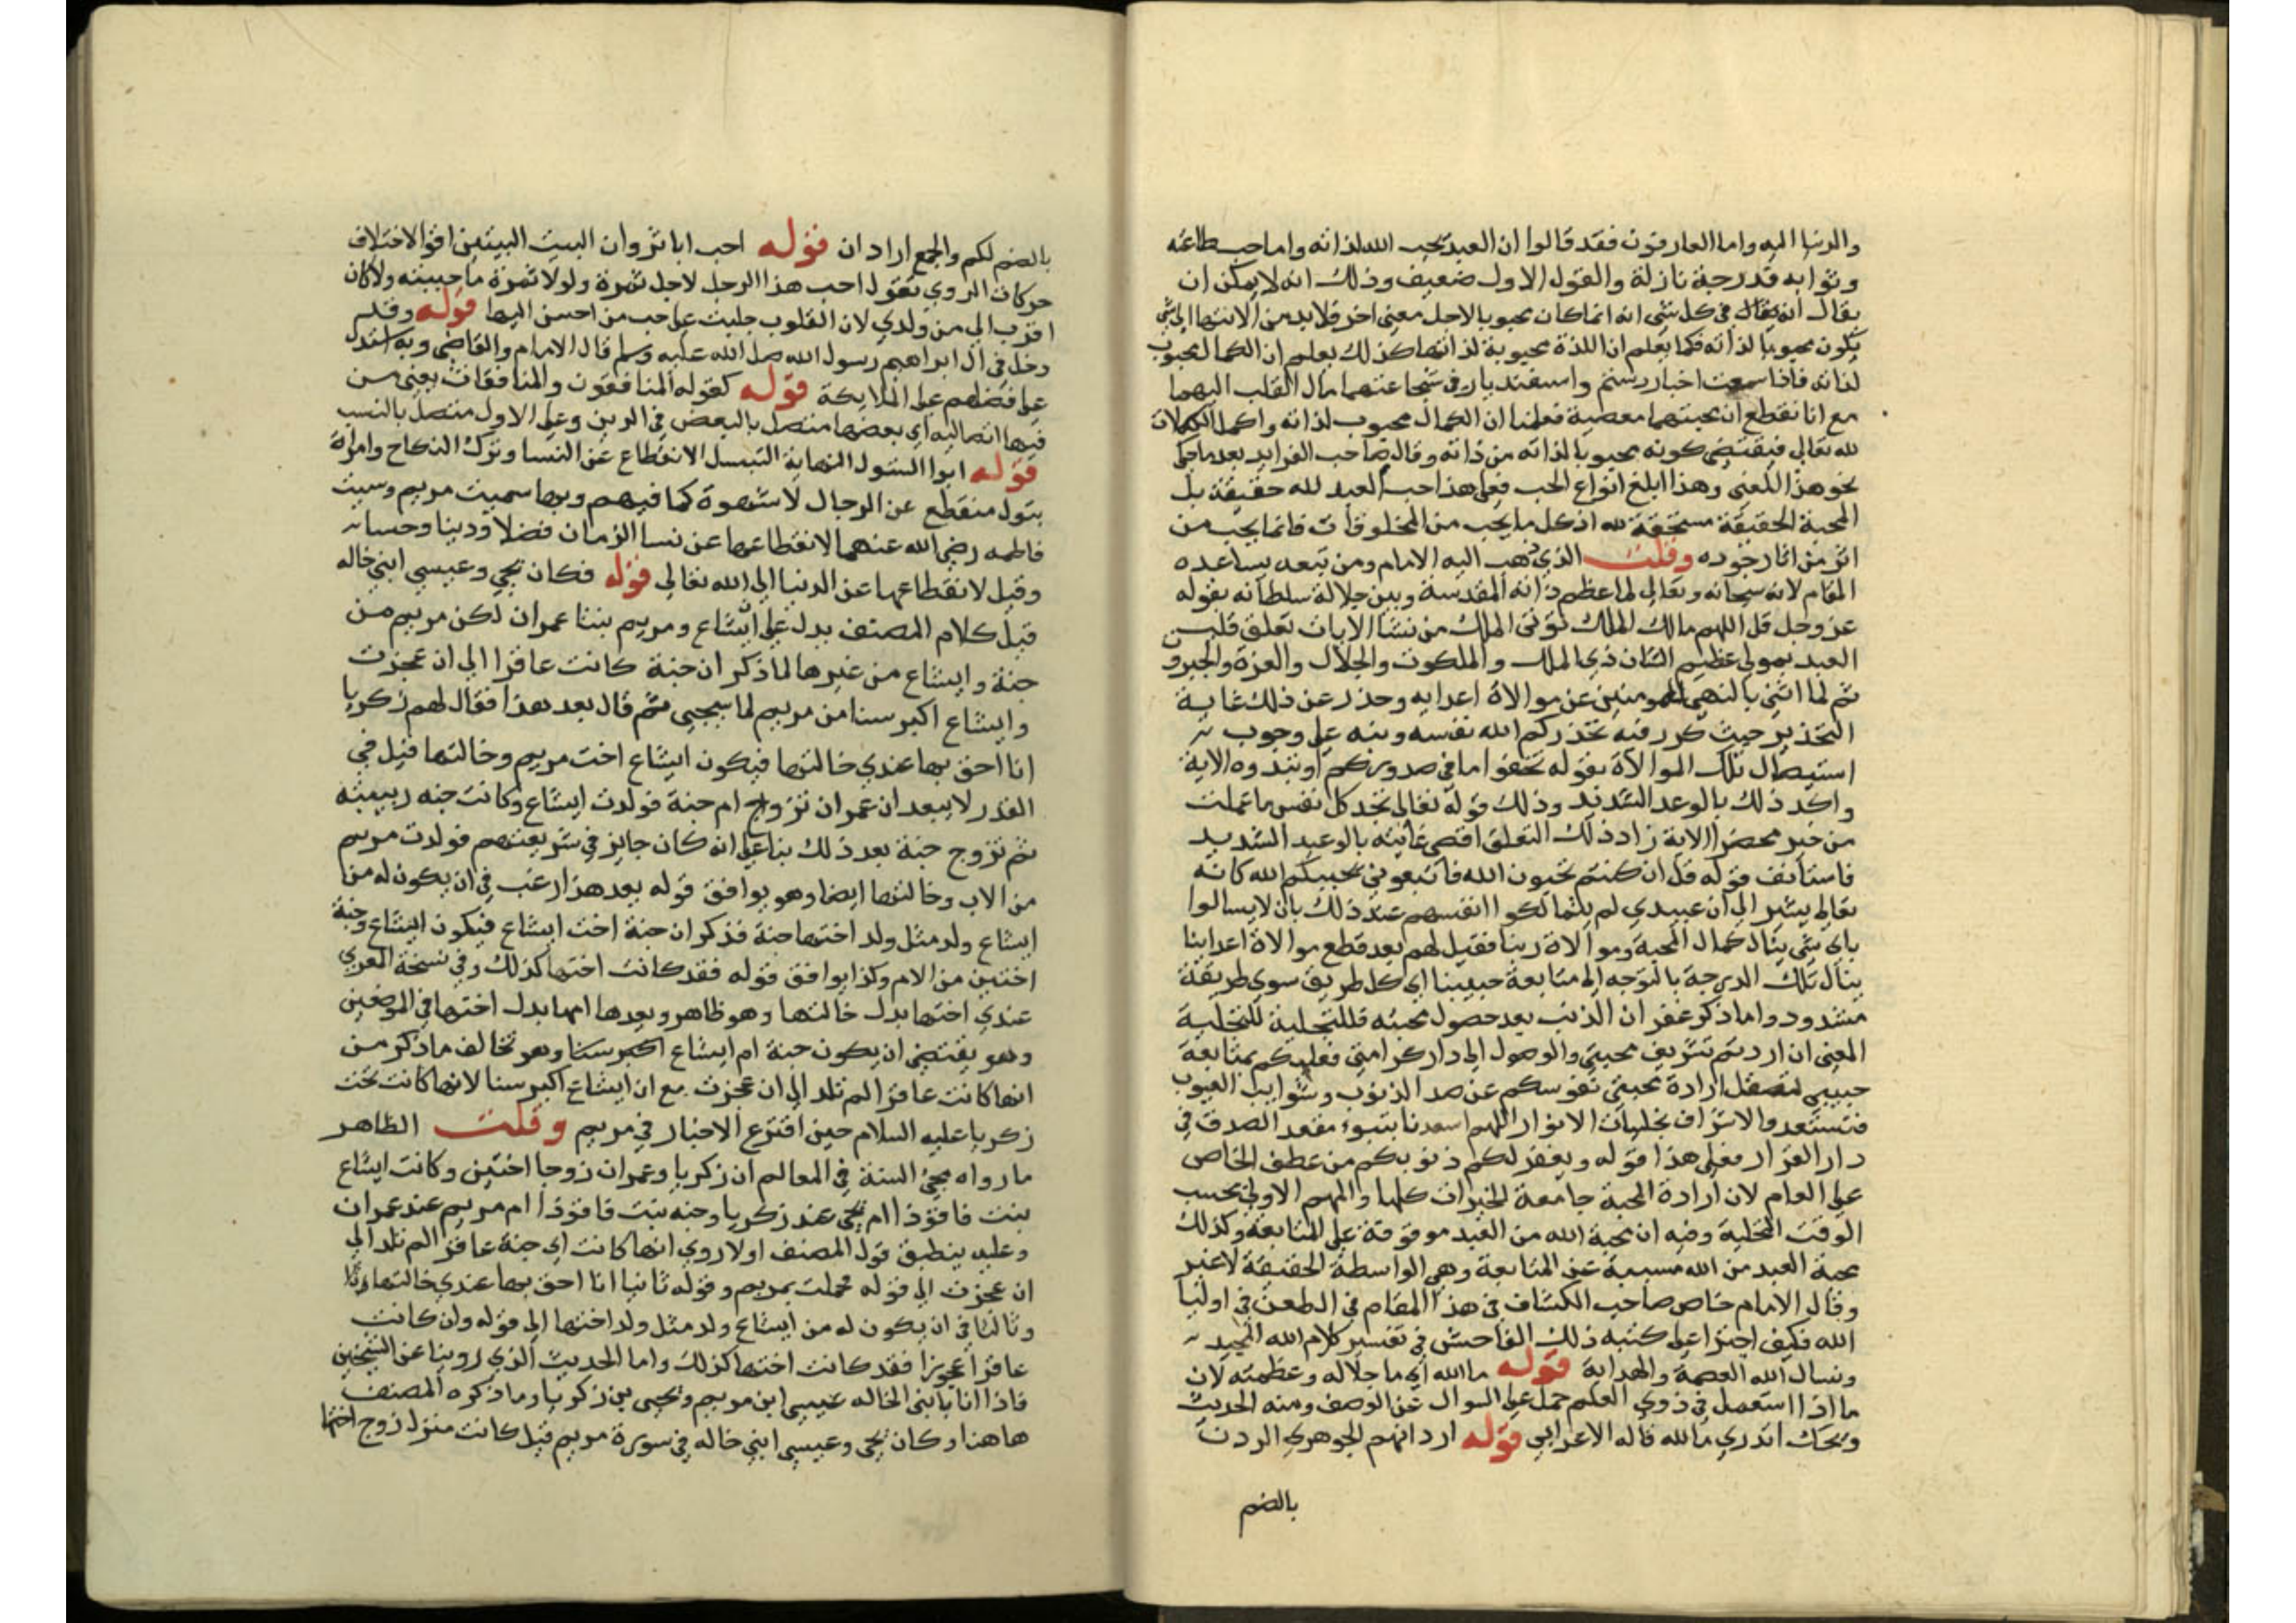 والدنيا اليه واما العارفون فقد قالوا ان العبد يحب الله لذاته واما حب طاعته
وثوابه فدرجة نازلة والقول الاول ضعيف وذلك انه لا يمكن ان
يقال في كل شي انه انما كان محبوبا لاجل معنى اخر فلا بد من الانتها الى شي
يكون محبوبا لذاته فكما يعلم ان اللذة محبوبة لذاتها كذلك يعلم ان الكمال محبوب
لذاته فاذا سمعت اخبار رستم واسفنديار في شجاعتهما مال القلب اليهما
مع انا نقطع ان محبتهما معصية فعلمنا ان الكمال محبوب لذاته واكمل الكمالات
لله تعالى فيقتضي كونه محبوبا لذاته من ذاته وقال صاحب الفرايد بعد ما حكى
نحو هذا المعنى وهذا ابلغ انواع الحب فعلى هذا حب العبد لله حقيقة بل
المحبة الحقيقة مستحقة لله اذ كل ما يحب من المخلوقات فانما يحب من
اثر من اثار جوده وقلت الذي ذهب اليه الامام ومن تبعه يساعده
المقام لانه سبحانه وتعالى لما عظم ذاته المقدسة وبين جلالة سلطانه بقوله
عز وجل قل اللهم مالك الملك توتي الملك من تشا الايات تعلق قلب
العبد بمولى عظيم الشان ذي الملك والملكوت والجلال والعزة والجبروت
ثم لما اثنى بالنهي المومنين عن موالاة اعدايه وحذر عن ذلك غاية
التحذير حيث كرر فيه يحذركم الله نفسه ونبه على وجوب
استيصال تلك الموالاة بقوله تخفوا ما في صدوركم او تبدوه الاية
واكد ذلك بالوعد الشديد وذلك قوله تعالى تجد كل نفس ما عملت
من خير محضرا الاية زاد ذلك التعلق اقصى غايته بالوعيد الشديد
فاستانف قوله قل ان كنتم تحبون الله فاتبعوني يحببكم الله كانه
تعالى يشير الى ان عبيدي لم يتمالكوا انفسهم عند ذلك بان لا يسالوا
باي شي ينال كمال المحبة وموالاة ربنا فقيل لهم بعد قطع موالاة اعداينا
ينال تلك الدرجة بالتوجه الى متابعة حبيبنا اي كل طريق سوى طريقة
مسدود واما ذكر غفران الذنب بعد حصول محبته فللتجلية للتحلية
المعنى ان اردتم تشريف محبتي والوصول الى دار كرامتي فعليكم بمتابعة
حبيبي لتصقل ارادة محبتي نفوسكم عن صد الذنوب وشوايب العيوب
فتستعد والاشراف تجليات الانوار اللهم اسعدنا بتبوء مقعد الصدق في
دار القرار فعلى هذا قوله ويغفر لكم ذنوبكم من عطف الخاص
على العام لان ارادة المحبة جامعة للخيرات كلها والمهم الاولى بحسب
الوقت التخلية وفيه ان محبة الله من العبد موقوفة على المتابعة وكذلك
محبة العبد من الله مسببة عن المتابعة وهي الواسطة الحقيقة لا غير
وقال الامام خاض صاحب الكشاف في هذا المقام في الطعن في اوليا
الله فكيف اجترا على كتبه ذلك الفاحش في تفسير كلام الله المجيد
ونسال الله العصمة والهداية قوله ما الله اي ما جلاله وعظمته لان
ما اذا استعمل في ذوي العلم حمل على السوال عن الوصف ومنه الحديث
ويحك اتدري ما الله قاله الاعرابي قوله اردانهم الجوهري الردن
بالضم
بالضم لكم والجمع اردان قوله احب ابا ثروان البيت البيتين اقوا لاختلاف
حركات الروي تقول احب هذا الرجل لاجل تمرة ولولا تمرة ما حببته ولا كان
اقرب الي من ولدي لان القلوب جبلت على حب من احسن اليها قوله وقد
دخل في ال ابراهيم رسول الله صلى الله عليه وسلم قال الامام والقاضي وبه استدل
على فضلهم على الملايكة قوله كقوله المنافقون والمنافقات يعني من
فيها اتصاليه اي بعضها متصل بالبعض في الدين وعلى الاول متصل بالنسب
قوله ابوا البتول النهاية التبتل الانقطاع عن النسا وترك النكاح وامراة
بتول منقطع عن الرجال لا شهوة كما فيهم وبها سميت مريم وسميت
فاطمه رضي الله عنهما لانقطاعها عن نسا الزمان فضلا ودينا وحسبا
وقيل لانقطاعها عن الدنيا الى الله تعالى قوله فكان يحيى وعيسى ابني خاله
قيل كلام المصنف يدل على ايشاع ومريم بنتا عمران لكن مريم من
حنة وايشاع من غيرها لما ذكر ان حنة كانت عاقرا الى ان عجزت
وايشاع اكبر سنا من مريم لما سيجيى ثم قال بعد هذا فقال لهم زكريا
انا احق بها عندي خالتها فيكون ايشاع اخت مريم وخالتها قيل في
العذر لا يبعد ان عمران تزوج ام حنة فولدت ايشاع وكانت حنه ربيبته
ثم تزوج حنة بعد ذلك بنا على انه كان جايز في شريعتهم فولدت مريم
من الاب وخالتها ايضا وهو يوافق قوله بعد هذا رغب في ان يكون له من
ايشاع ولد مثل ولد اختها حنة فذكر ان حنة اخت ايشاع فيكون ايشاع وحنة
اختين من الام وكذا يوافق قوله فقد كانت اختها كذلك وفي نسخة المعزي
عندي اختها بدل خالتها وهو ظاهر وبعدها امها بدل اختها في الموضعين
وهو يقتضي ان يكون حنة ام ايشاع اكبر سنا وهو تخالف ما ذكر من
انها كانت عاقرا لم تلد الى ان عجزت مع ان ايشاع اكبر سنا لانها كانت تحت
زكريا عليه السلام حين اقترع الاحبار في مريم وقلت الظاهر
ما رواه محيى السنة في المعالم ان زكريا وعمران زوجا اختين وكانت ايشاع
بنت فاقوذا ام يحيى عند زكريا وحنه بنت فاقوذا ام مريم عند عمران
وعليه ينطبق قول المصنف اولا روي انها كانت اي حنة عاقرا لم تلد الى
ان عجزت الى قوله فحملت بمريم وقوله ثانيا انا احق بها عندي خالتها
وثالثا في ان يكون له من ايشاع ولد مثل ولد اختها الى قوله وان كانت
عاقرا عجوزا فقد كانت اختها كذلك واما الحديث الذي روينا عن الشيخين
فاذا انا بابني الخاله عيسى ابن مريم ويحيى بن زكريا وما ذكره المصنف
هاهنا وكان يحيى وعيسى ابني خاله في سورة مريم قيل كانت منزل زوج اختها